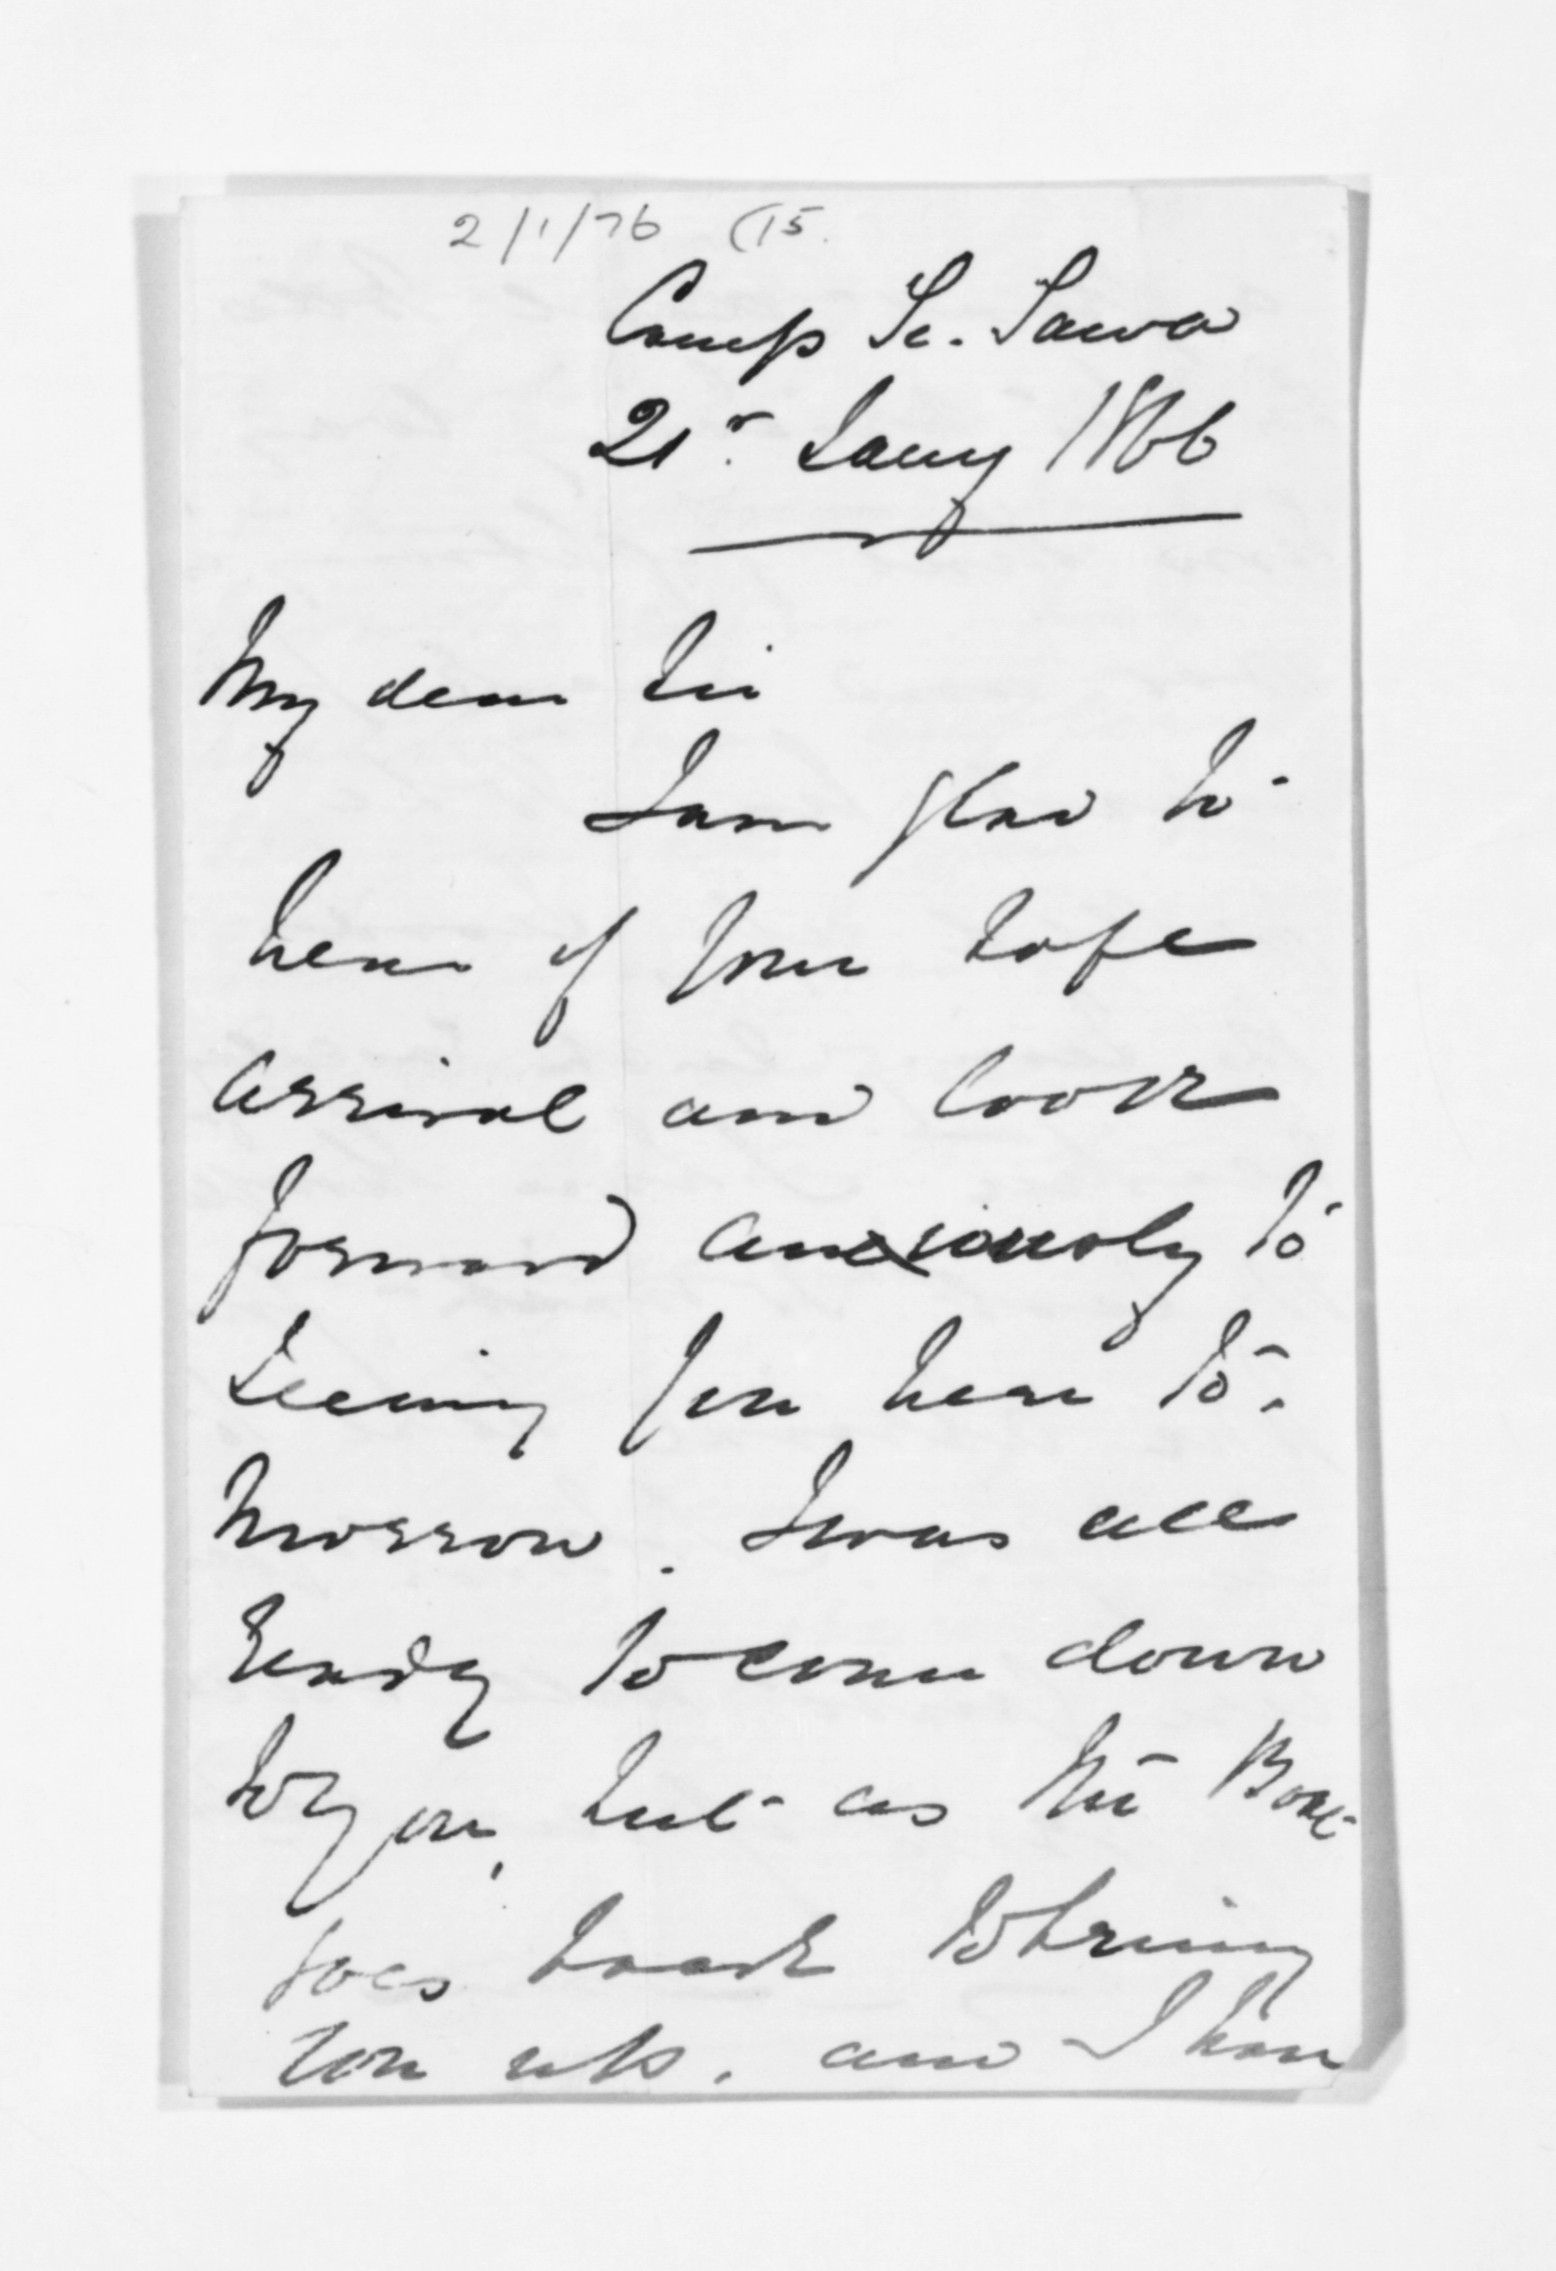 2/1/76 (15.
Camp Te. Tawa
21st Jany 1866
My dear Sir
I am glad to
hear of your safe
arrival and look
forward anxiously to
seeing you here to-
morrow. I was all
ready to come down
to you, but as the Boat
goes back to bring
you up. and I have